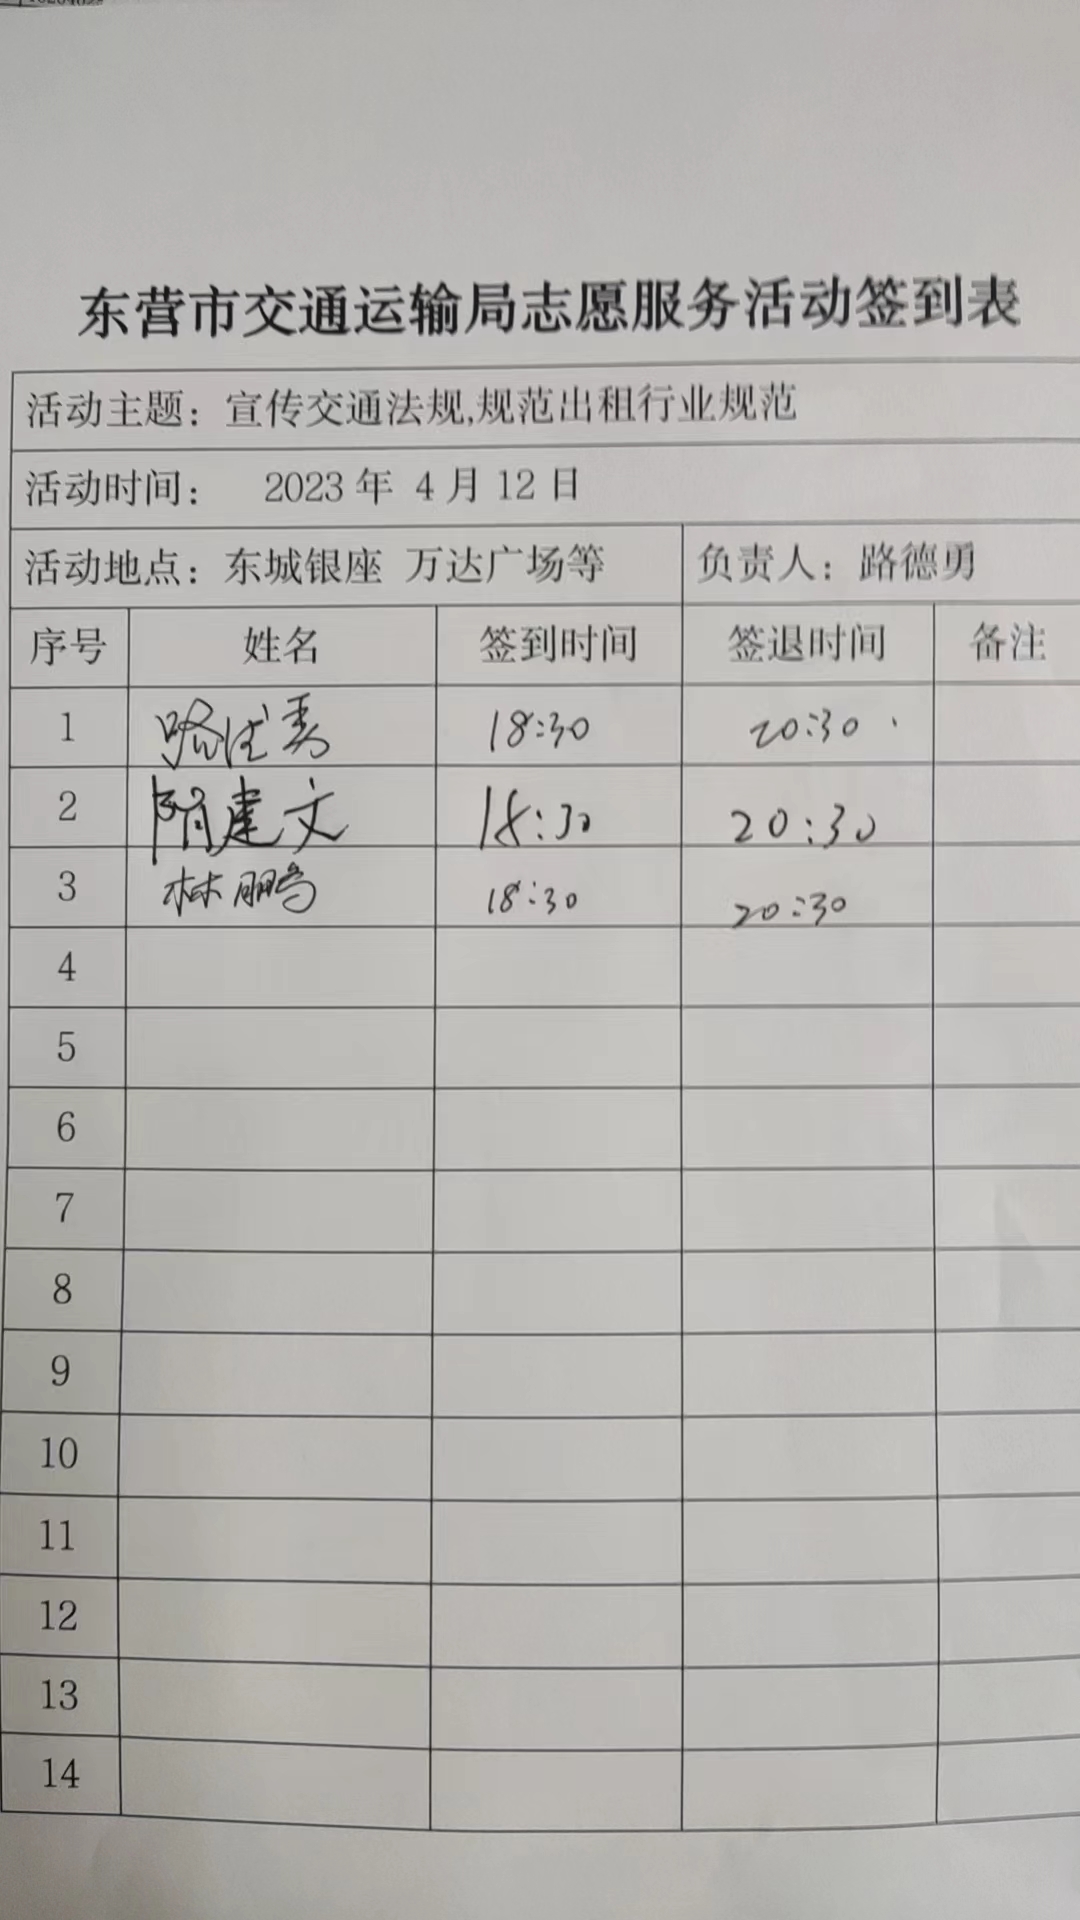 东营市交通运输局志愿服务活动签到表
活动主题：宣传交通法规,规范出租行业规范
活动时间： 2023 年 4 月 12 日
活动地点：东城银座 万达广场等 负责人：路德勇
序号 姓名 签到时间 签退时间 备注
1 路德勇 18:30 20:30
2 隋建文 18:30 20:30
3 林鹏 18:30 20:30
4
5
6
7
8
9
10
11
12
13
14